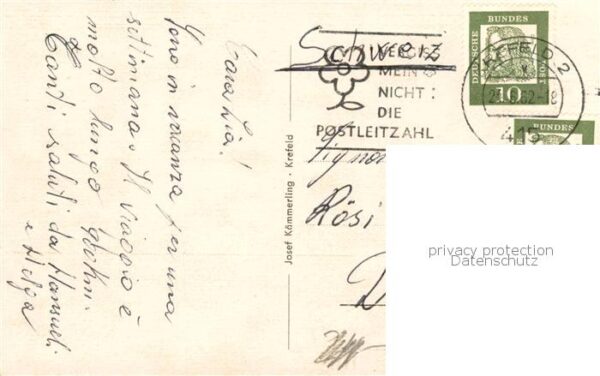 Cara Zia!
Sono in vacanza per una
settimana. Il viaggio è
molto lungo
Tanti saluti da Hansueli
e Helga
Josef Kämmerling - Krefeld
Schweiz
VERGISS
MEIN
NICHT:
DIE
POSTLEITZAHL
KREFELD 2
62-18
415
DEUTSCHE BUNDESPOST
10
Rösi
privacy protection
Datenschutz